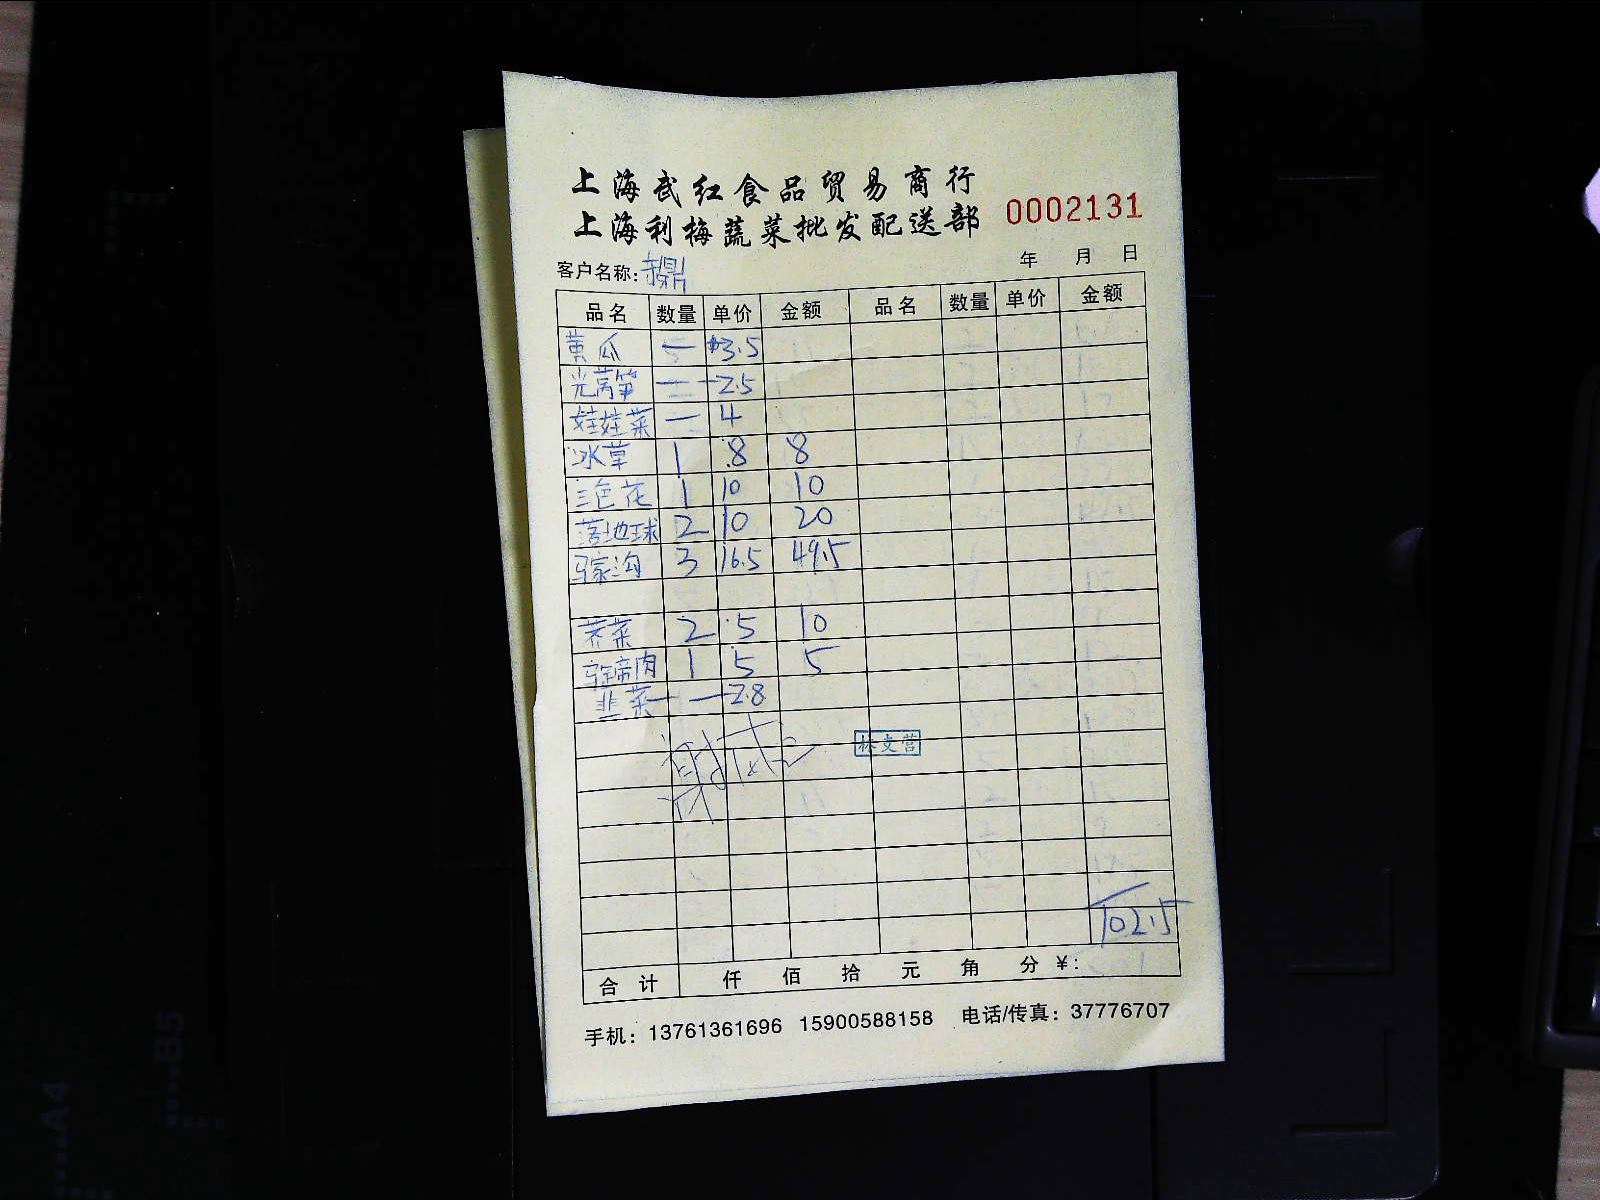 上海武红食品贸易商行
上海利梅蔬菜批发配送部 0002131
客户名称： 年 月 日
品名 数量 单价 金额 品名 数量 单价 金额
黄瓜 — 3.5
光莴笋 — 2.5
娃娃菜 — 4
冰草 1 8 8
三色花 1 10 10
落地球 2 10 20
马家沟 3 16.5 49.5
荠菜 2 5 10
马蹄肉 1 5 5
韭菜 — 2.8
林支营
102.5
合计 仟 佰 拾 元 角 分 ¥:
手机：13761361696 15900588158 电话/传真：37776707
A4
B5